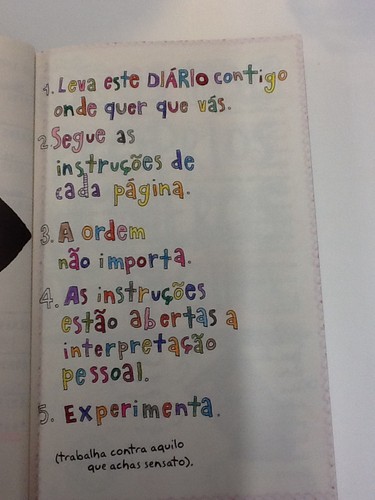 1. Leva este DIÁRIO contigo
onde quer que vás.
2. Segue as
instruções de
cada página.
3. A ordem
não importa.
4. As instruções
estão abertas a
interpretação
pessoal.
5. Experimenta.
(trabalha contra aquilo
que achas sensato).